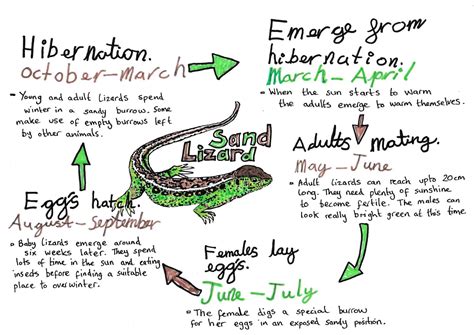 Hibernation.
October-March
- Young and adult Lizards spend
winter in a sandy burrow. Some
make use of empty burrows left
by other animals.
Emerge from
hibernation.
March-April
- When the sun starts to warm
the adults emerge to warm themselves.
Adults Mating.
May-June
• Adult lizards can reach upto 20cm
long. They need plenty of sunshine
to become fertile. The males can
look really bright green at this time.
Females lay
eggs.
June-July
• The female digs a special burrow
for her eggs in an exposed sandy position.
Eggs hatch.
August-September
• Baby lizards emerge around
six weeks later. They spend
lots of time in the sun and eating
insects before finding a suitable
place to overwinter.
Sand
Lizard